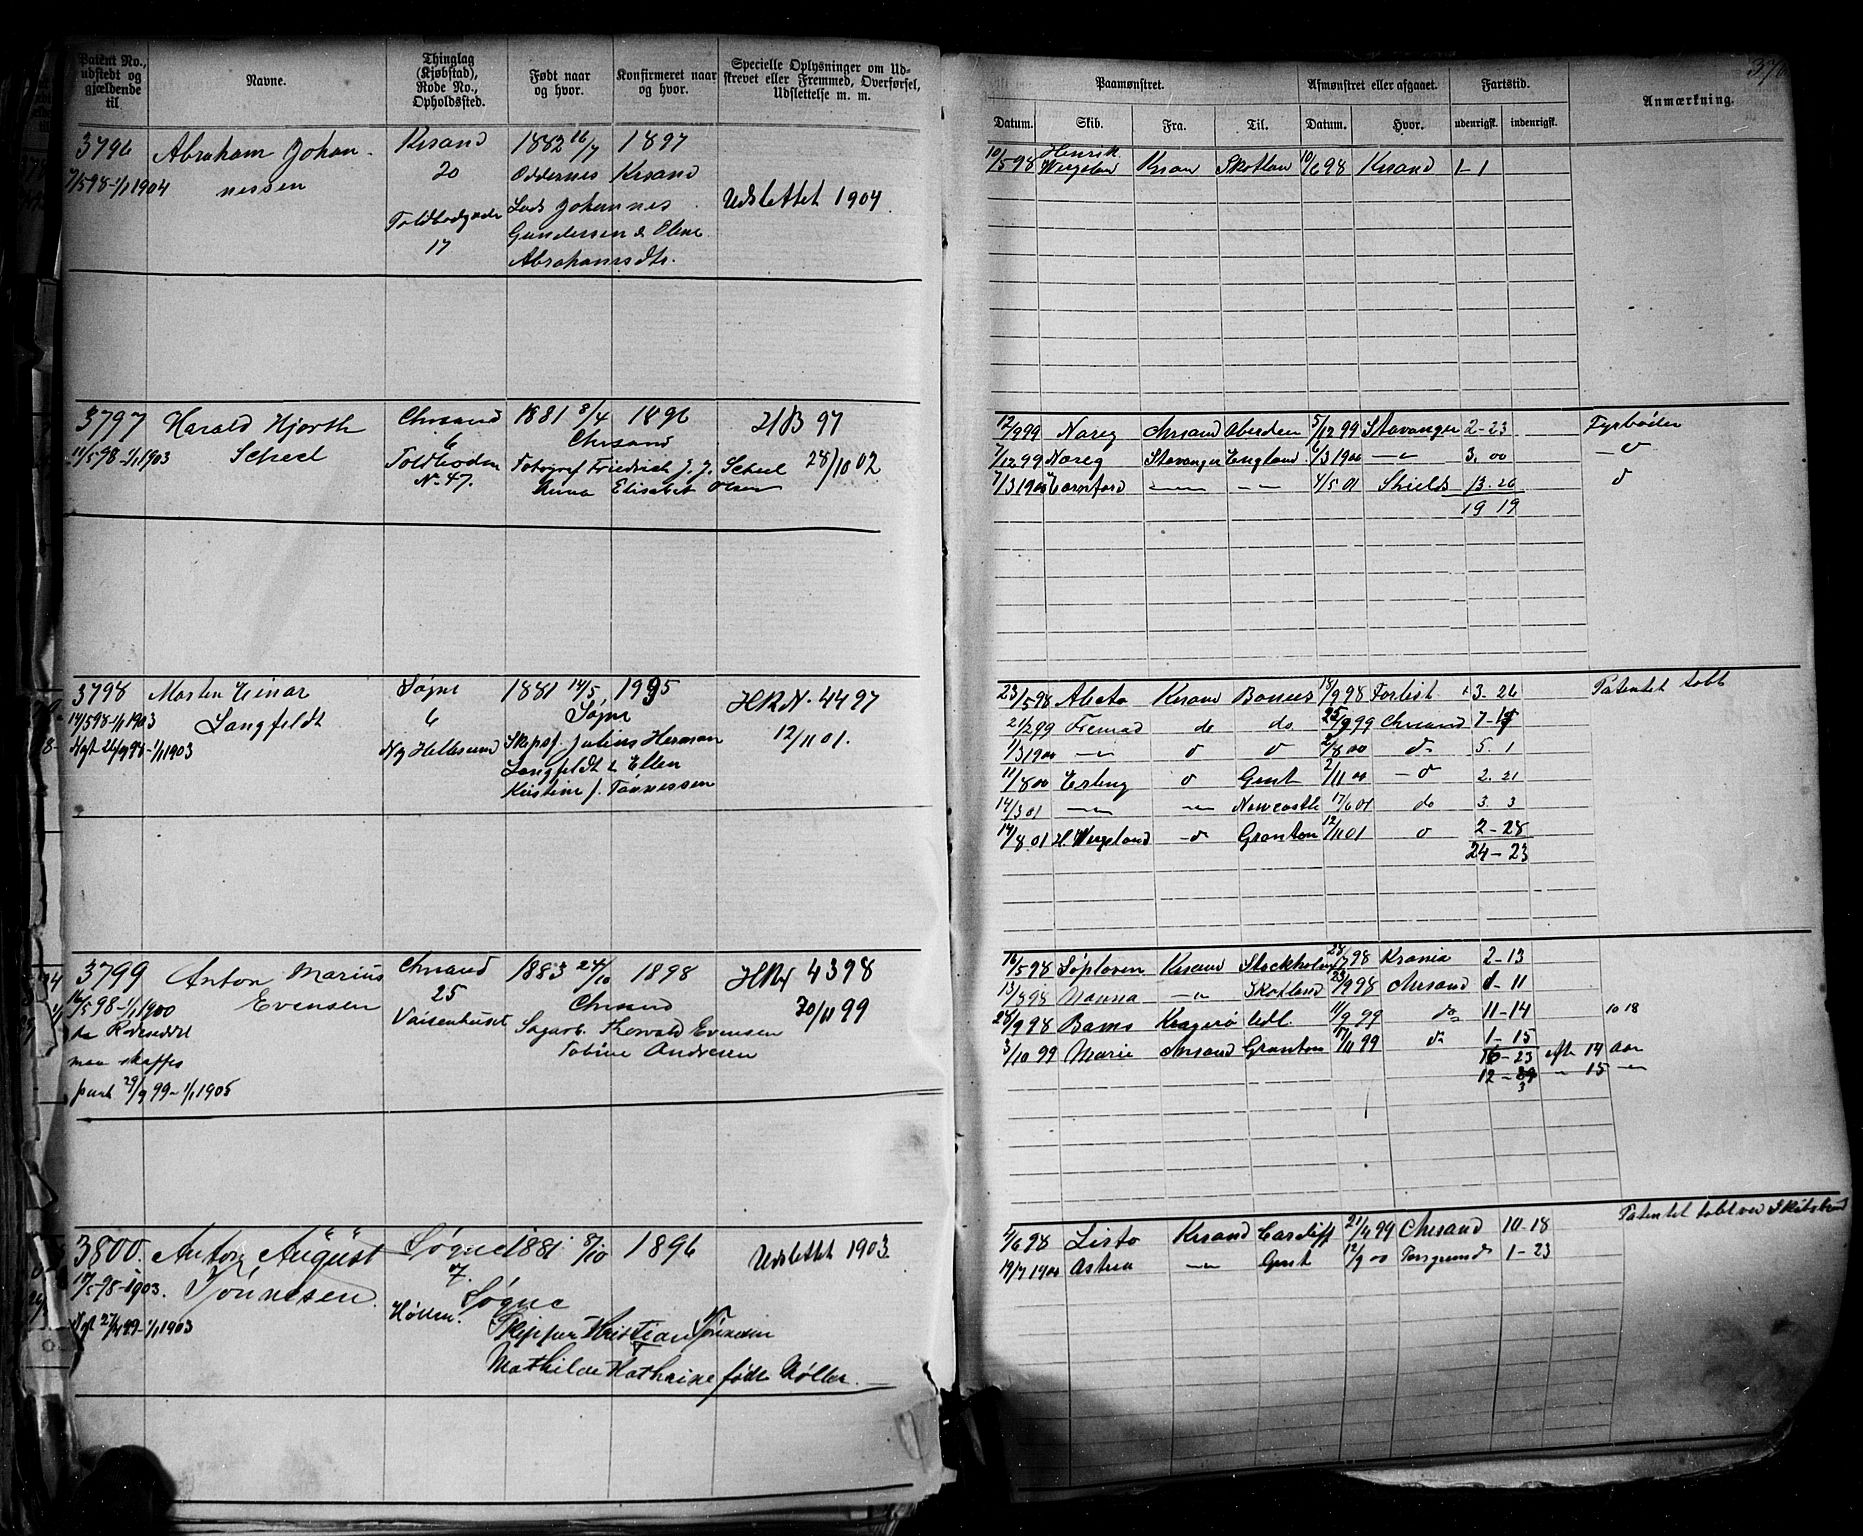 Patent No., udstedt og gjældende til.
Navne.
Thinglag (Kjøbstad), Rode No., Opholdssted.
Født naar og hvor.
Konfirmeret naar og hvor.
Specielle Oplysninger om Udskrevet eller Fremmed, Overførsel, Udslettelse m. m.
3796 Abraham Johan- Krsand 1882 16/7 1897
7/5 98-1/1 1904 nessen 20 Oddernes Krsand
Toldbodgade Lods Johannes Udslettet 1904
17 Gundersen & Elene
Abrahamsdtr.
3797 Harald Hjorth Chrsand 1881 8/4 1896 HB 97
11/5 98-1/1 1903 Scheel 6 Chrsand
Toldboden Fotograf Friedrich J. J. Scheel 28/10 02
No 47. Anna Elisabet Olsen
3798 Morten Einar Søgne 1881 14/5 1995 HRN. 4497
14/5 98-1/1 1903 Langfeldt 6 Søgne
Nyt 22/9 98-1/1 1903 Ny Hellesund Skipsf. Julius Herman 12/11 01.
Langfeldt & Ellen
Kirstine f. Tønnessen
3799 Anton Marius Chrsand 1883 24/10 1898 4398
16/5 98-1/1 1900 Evensen 25 Chrsand 30/11 99
Vaisenhuset Sagarb. Thorvald Evensen
maa skaffes Tobine Andresen
29/9 99-1/1 1905
3800. Anton August Søgne 1881 8/10 1896 Udslettet 1903
17/5-98-1/1 1903. Tønnesen. 7. Søgne
Nyt 27/4 99-1/1 1903 Høllen. Skipper Kristian Tønnesen
Mathilde Kathrine født Møller.
Paamønstret.
Afmønstret eller afgaaet.
Fartstid.
Anmærkning.
Datum. Skib. Fra. Til. Datum. Hvor. udenrigsk. indenrigsk.
10/5 98 Henrik Wergeland Krsan Skotlan 10/6 98 Krsand 1-1
12/9 99 Noreg Chrsand Aberdeen 5/12 99 Stavanger 2-23 Fyrbøder
7/12 99 Noreg Stavanger England 6/3 1900 -"- 3. 00
7/3 1900 -"- -"- 4/5 01 Shields 13. 26
19 19
23/5 98 Krsand 18/9 98 3-26 Patentet tabt
21/2 99 Fremad do do 25/9 99 Chrsand
1/3 1900 -"- 2/8 00 5. 1
11/8 00 Erling Gent 2/11 00 2. 21
14/3 01 -"- -"- Newcastle 17/6 01 do 3. 3
14/8 01 H. Wergeland Granton 12/11 01 2-28
24-23
16/5 98 Søploven Krsand Stockholm 28/7 98 Krania 2-13
13/8 98 Nanna -"- Skotland 23/9 98 Chrsand 1-11
28/9 98 Bams Kragerø Udl. 11/9 99 do 11-14 10 18
3/10 99 Marie Chrsand Granton 17/11 99 1-15
16-23 efter 14 aar
12- 3 " 15 -"-
7/6 98 Lista Krsand Cardiff 21/4 99 Chrsand 10-18 Patentet tabt ved Skibsbrud
19/7 1900 Astrea -"- Gent 12/9 00 Porsgrund 1-23